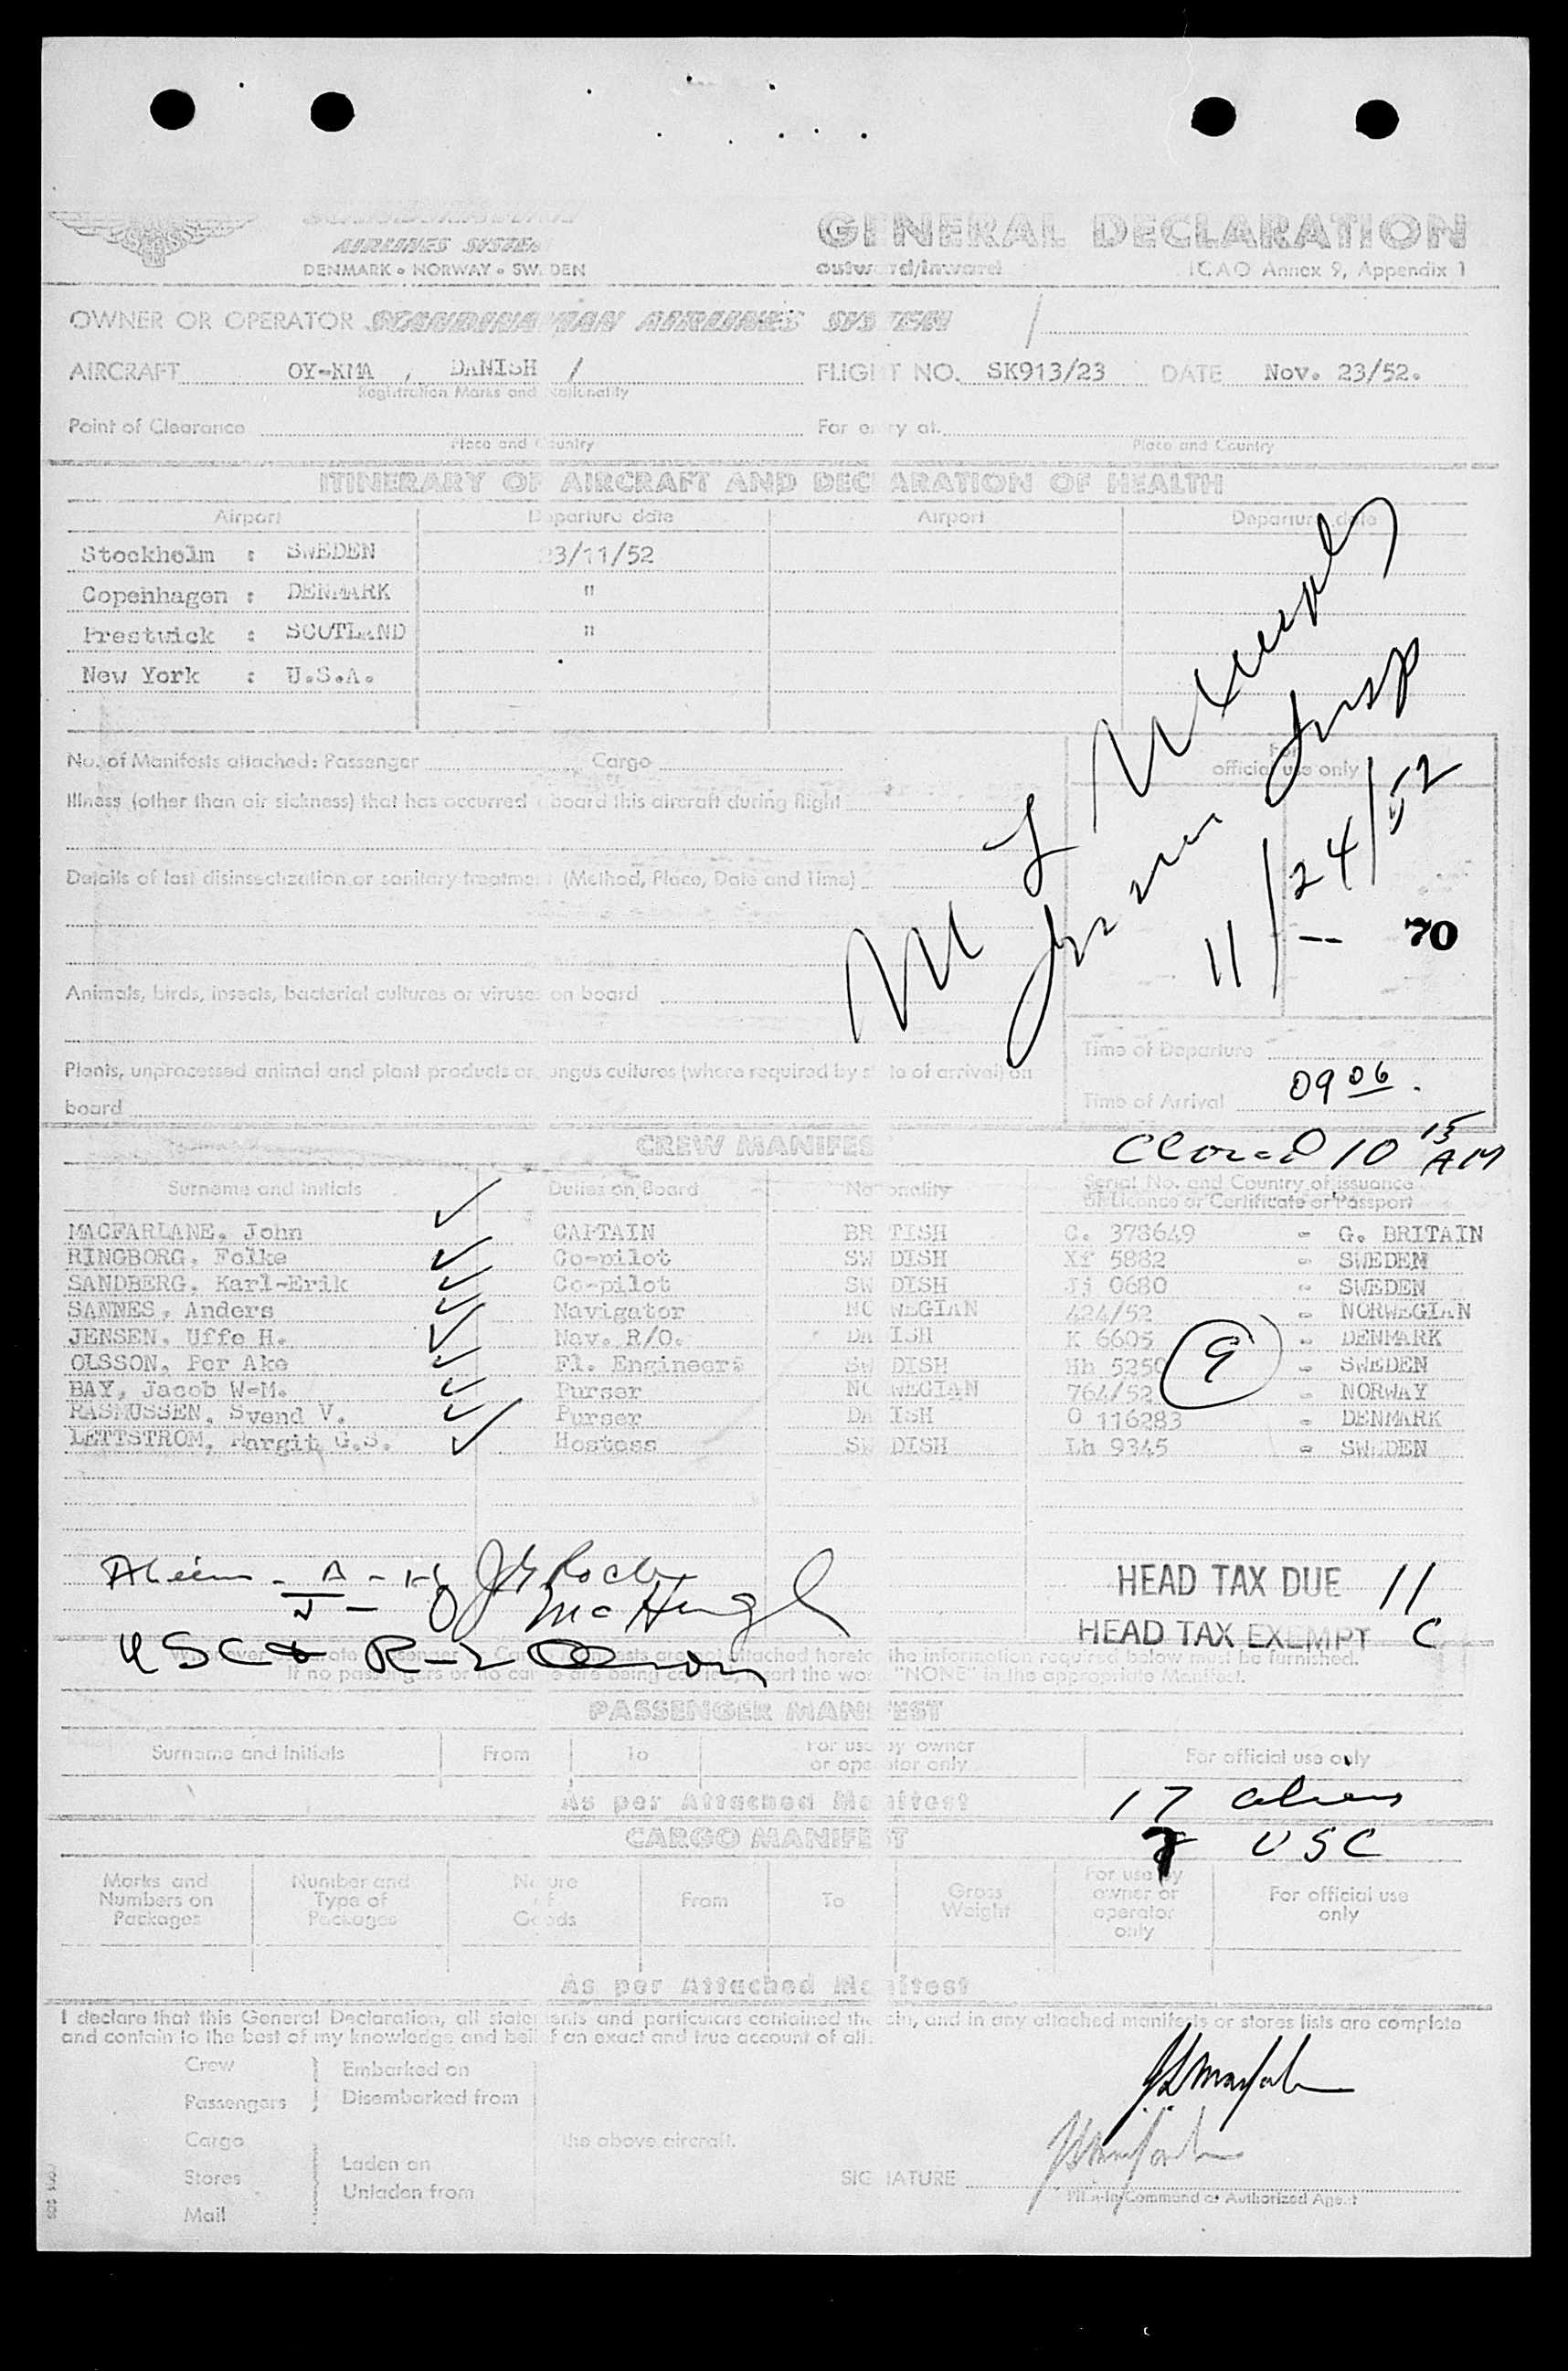 AIRLINES SYSTEM
DENMARK • NORWAY • SWEDEN
GENERAL DECLARATION
outward/inward
ICAO Annex 9, Appendix 1
OWNER OR OPERATOR SCANDINAVIAN AIRLINES SYSTEM /
AIRCRAFT OY-KMA , DANISH / FLIGHT NO. SK913/23 DATE Nov. 23/52.
Registration Marks and Nationality
Point of Clearance For entry at.
Place and Country Place and Country
ITINERARY OF AIRCRAFT AND DECLARATION OF HEALTH
Airport Departure date Airport Departure date
Stockholm : SWEDEN 23/11/52
Copenhagen : DENMARK "
Prestwick : SCOTLAND "
New York : U.S.A.
No. of Manifests attached: Passenger Cargo
For official use only
Illness (other than air sickness) that has occurred on board this aircraft during flight
Details of last disinsectization or sanitary treatment (Method, Place, Date and Time)
11/24/52
70
Animals, birds, insects, bacterial cultures or viruses on board
Time of Departure
Plants, unprocessed animal and plant products or fungus cultures (where required by state of arrival) on
board
Time of Arrival 09 06 .
CREW MANIFEST
Closed 10 15 AM
Surname and initials Duties on Board Nationality Serial No. and Country of issuance
of Licence or Certificate or Passport
MACFARLANE, John CAPTAIN BRITISH C. 378649 - G. BRITAIN
RINGBORG, Folke Co-pilot SWEDISH Xf 5882 - SWEDEN
SANDBERG, Karl-Erik Co-pilot SWEDISH Jj 0680 - SWEDEN
SANNES, Anders Navigator NORWEGIAN 424/52 - NORWEGIAN
JENSEN, Uffe H. Nav. R/O. DANISH K 6605 - DENMARK
OLSSON, Per Ake Fl. Engineers SWEDISH Hh 5250 - SWEDEN
BAY, Jacob W-M. Purser NORWEGIAN 764/52 - NORWAY
RASMUSSEN, Svend V. Purser DANISH O 116283 - DENMARK
LETTSTROM, Margit G.S. Hostess SWEDISH Lh 9345 - SWEDEN
9
HEAD TAX DUE 11
HEAD TAX EXEMPT C
McHugh
USC
If no passengers or no cargo are being carried, insert the word "NONE" in the appropriate Manifest.
PASSENGER MANIFEST
Surname and Initials From To For use by owner or operator only For official use only
As per Attached Manifest
17 aliens
7 USC
CARGO MANIFEST
Marks and Numbers on Packages Number and Type of Packages Nature of Goods From To Gross Weight For use by owner or operator only For official use only
As per Attached Manifest
I declare that this General Declaration, all statements and particulars contained therein, and in any attached manifests or stores lists are complete
and contain to the best of my knowledge and belief an exact and true account of all:
Crew Embarked on
Passengers Disembarked from
Cargo the above aircraft.
Stores Laden on
Unladen from
Mail
SIGNATURE
Pilot-in-Command or Authorized Agent